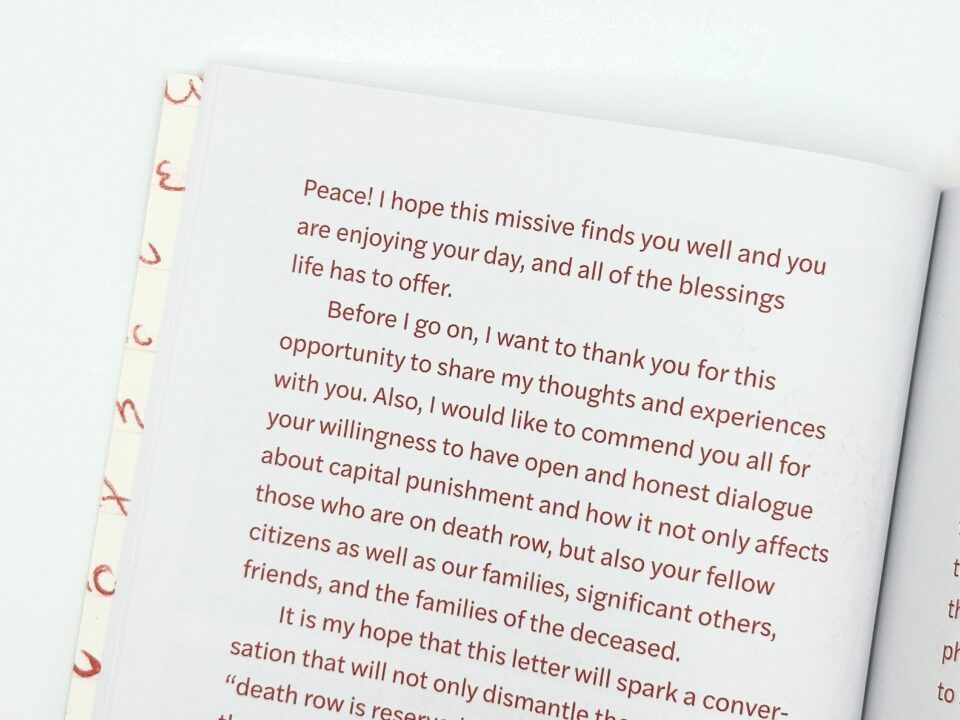 Peace! I hope this missive finds you well and you
are enjoying your day, and all of the blessings
life has to offer.
Before I go on, I want to thank you for this
opportunity to share my thoughts and experiences
with you. Also, I would like to commend you all for
your willingness to have open and honest dialogue
about capital punishment and how it not only affects
those who are on death row, but also your fellow
citizens as well as our families, significant others,
friends, and the families of the deceased.
It is my hope that this letter will spark a conver-
sation that will not only dismantle the
“death row is reserved
to